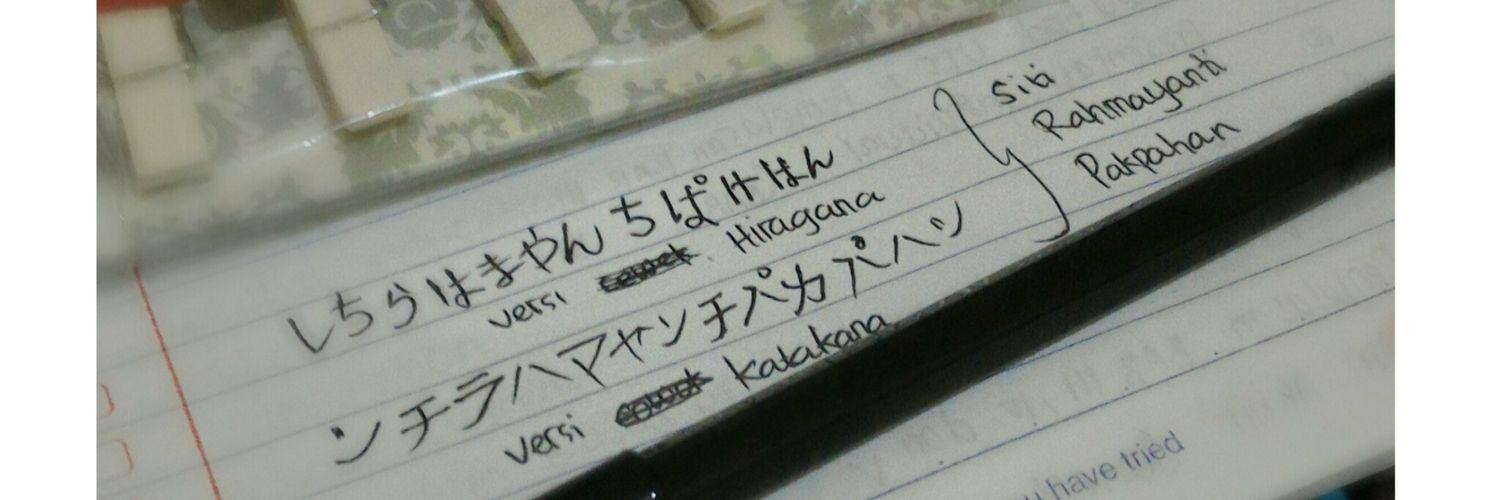 しちらはまやんちぱけはん
versi Hiragana
ンチラハマヤンチパカパハン
versi Katakana
Siti
Rahmayanti
Pakpahan
have tried